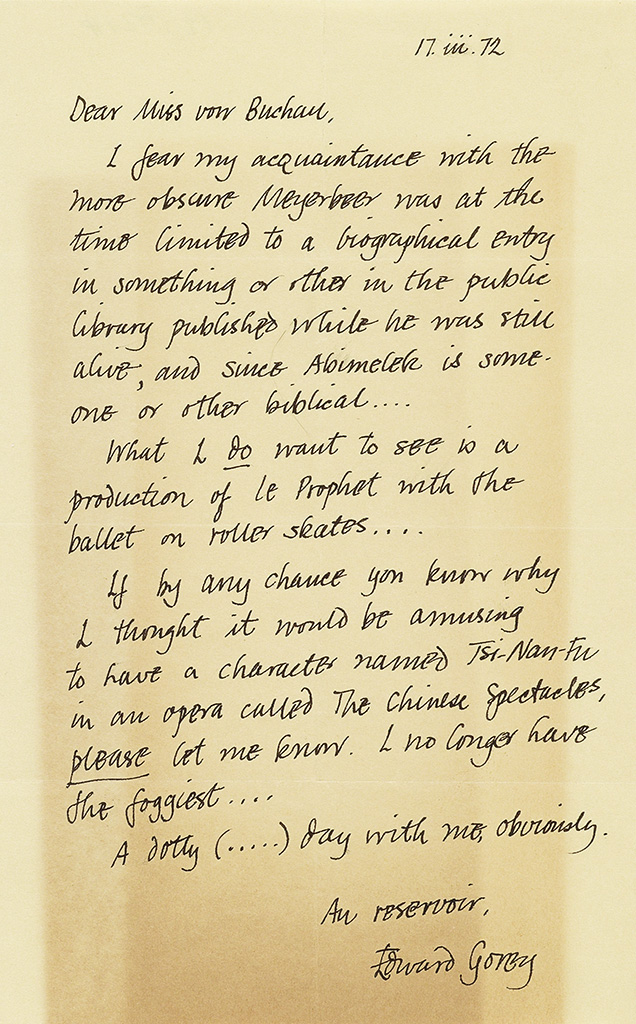 17.iii.72
Dear Miss von Buchau,
I fear my acquaintance with the
more obscure Meyerbeer was at the
time limited to a biographical entry
in something or other in the public
library published while he was still
alive, and since Abimelek is some-
one or other biblical....
What I do want to see is a
production of le Prophet with the
ballet on roller skates....
If by any chance you know why
I thought it would be amusing
to have a character named Tsi-Nan-Fu
in an opera called The Chinese Spectacles,
please let me know. I no longer have
the foggiest....
A dotty (.....) day with me, obviously.
Au reservoir,
Edward Gorey